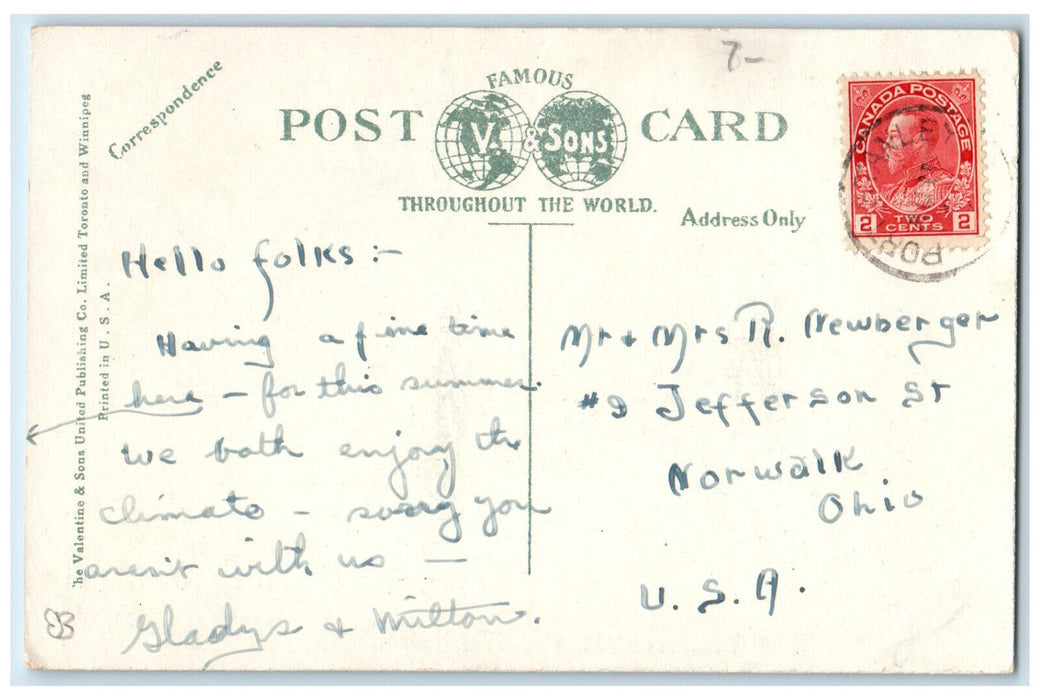 7-
Correspondence
FAMOUS
POST CARD
V. & SONS
THROUGHOUT THE WORLD.
Address Only
CANADA POSTAGE
2 TWO CENTS 2
The Valentine & Sons United Publishing Co. Limited Toronto and Winnipeg
Printed in U. S. A.
Hello folks:-
Having a fine time
here - for this summer.
we both enjoy the
climate - sorry you
aren't with us -
Gladys & Milton.
Mr & Mrs R. Newberger
#9 Jefferson St
Norwalk
Ohio
U. S. A.